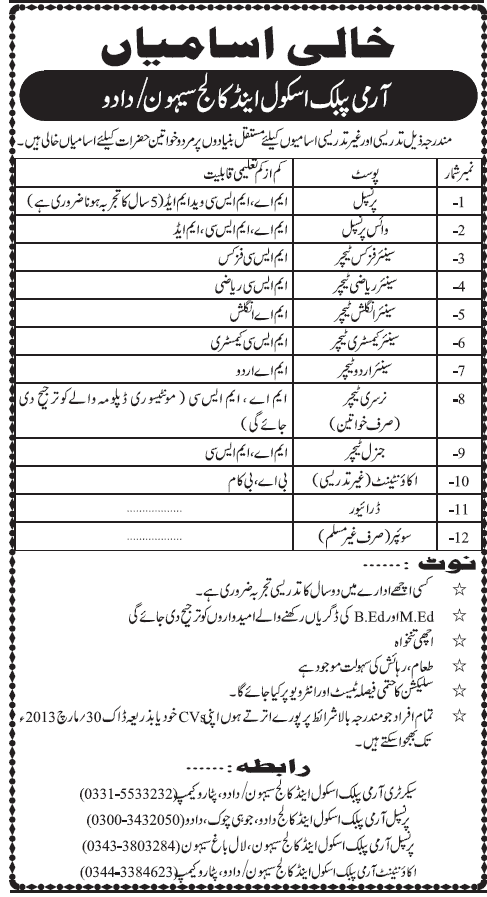 خالی اسامیاں
آرمی پبلک اسکول اینڈ کالج سیہون/دادو
مندرجہ ذیل تدریسی اور غیر تدریسی اسامیوں کیلئے مستقل بنیادوں پر مرد و خواتین حضرات کیلئے اسامیاں خالی ہیں۔
نمبر شمار پوسٹ کم از کم تعلیمی قابلیت
1- پرنسپل ایم اے، ایم ایس سی وِد ایم ایڈ (5 سال کا تجربہ ہونا ضروری ہے)
2- وائس پرنسپل ایم اے، ایم ایس سی، ایم ایڈ
3- سینئر فزکس ٹیچر ایم ایس سی فزکس
4- سینئر ریاضی ٹیچر ایم ایس سی ریاضی
5- سینئر انگلش ٹیچر ایم اے انگلش
6- سینئر کیمسٹری ٹیچر ایم ایس سی کیمسٹری
7- سینئر اردو ٹیچر ایم اے اردو
8- نرسری ٹیچر ایم اے، ایم ایس سی (مونٹیسوری ڈپلومہ والے کو ترجیح دی
(صرف خواتین) جائے گی)
9- جنرل ٹیچر ایم اے، ایم ایس سی
10- اکاؤنٹینٹ (غیر تدریسی) بی اے، بی کام
11- ڈرائیور ..................
12- سوئپر (صرف غیر مسلم) ..................
نوٹ :------
☆ کسی اچھے ادارے میں دو سال کا تدریسی تجربہ ضروری ہے۔
☆ M.Ed اور B.Ed کی ڈگریاں رکھنے والے امیدواروں کو ترجیح دی جائے گی
☆ اچھی تنخواہ
☆ طعام، رہائش کی سہولت موجود ہے
☆ سلیکشن کا حتمی فیصلہ ٹیسٹ اور انٹرویو پر کیا جائے گا۔
☆ تمام افراد جو مندرجہ بالا شرائط پر پورے اترتے ہوں اپنی CVs خود یا بذریعہ ڈاک 30/مارچ 2013ء
تک بھجوا سکتے ہیں۔
رابطہ :------
سیکرٹری آرمی پبلک اسکول اینڈ کالج سیہون/دادو، پٹارو کیمپ (0331-5533232)
پرنسپل آرمی پبلک اسکول اینڈ کالج دادو، جوہی چوک، دادو (0300-3432050)
پرنسپل آرمی پبلک اسکول اینڈ کالج سیہون، لال باغ سیہون (0343-3803284)
اکاؤنٹینٹ آرمی پبلک اسکول اینڈ کالج سیہون/دادو، پٹارو کیمپ (0344-3384623)